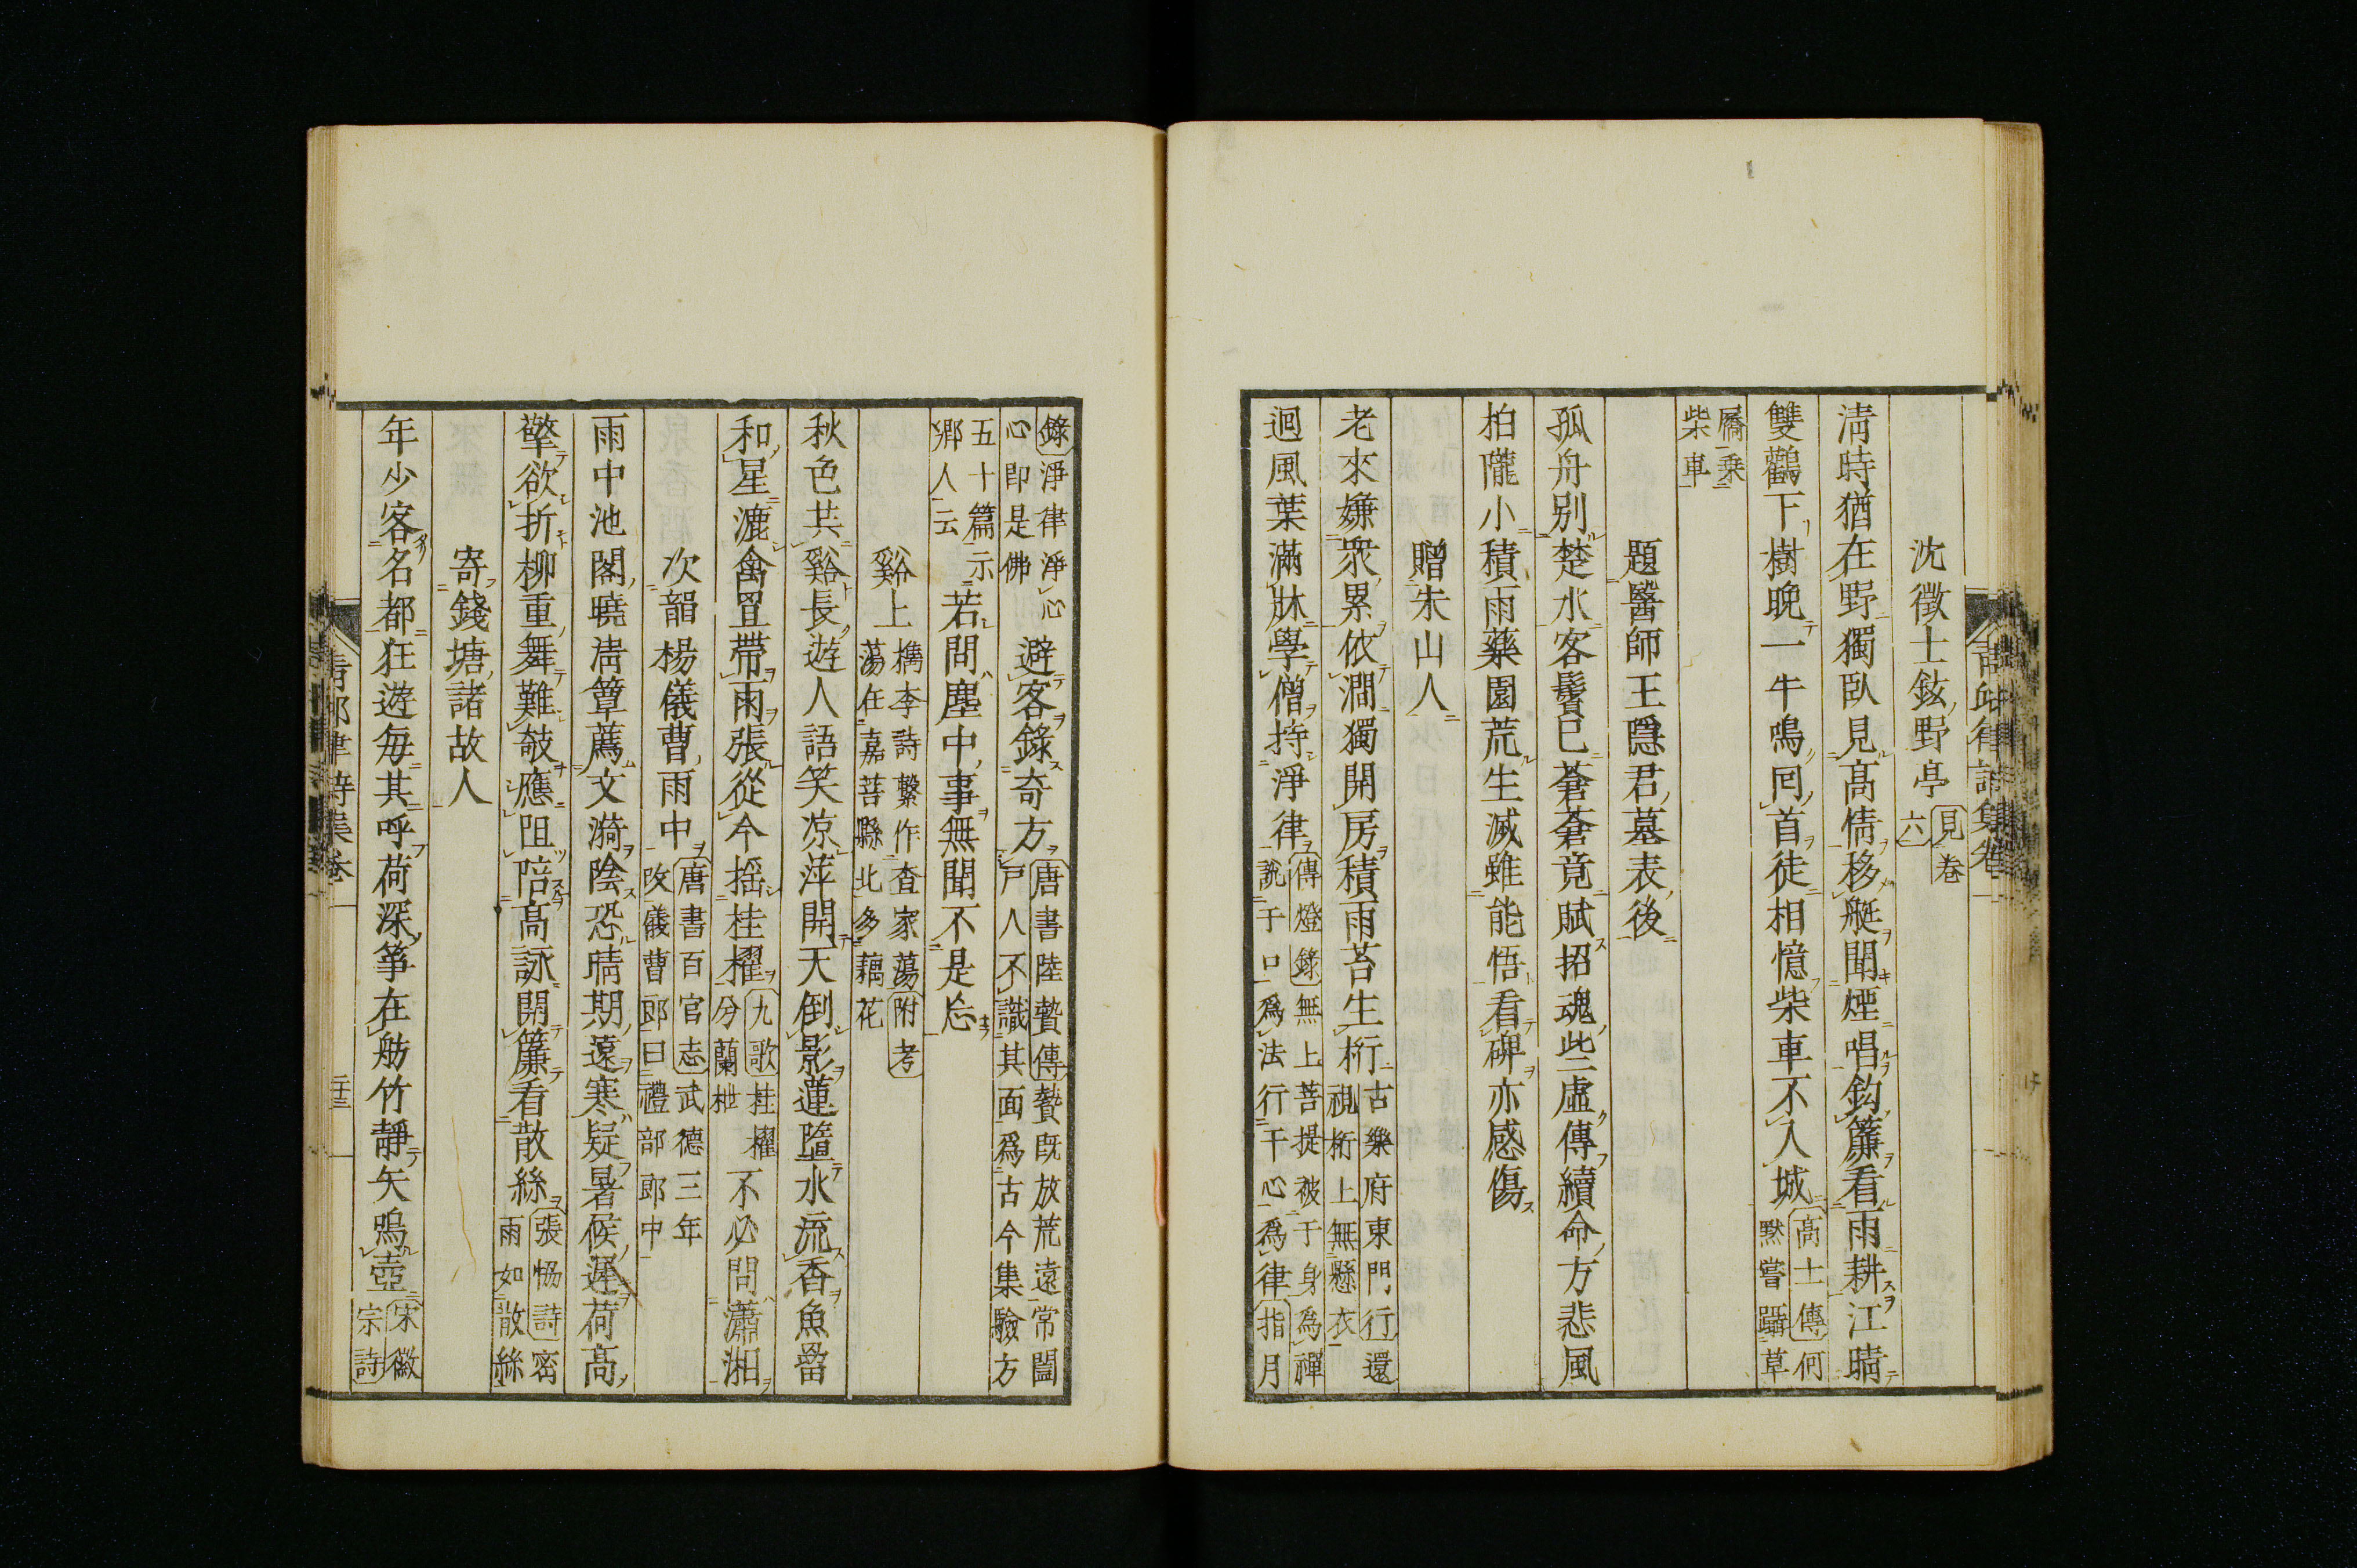 沈徵士鉉野亭見卷六
淸時猶在野獨臥見高情移艇聞煙唱鈎簾看雨耕江晴
雙鸛下樹晚一牛鳴回首徒相憶柴車不入城高士傳何點嘗躡草
屩乘柴車
題醫師王隱君墓表後
孤舟別楚水客鬢已蒼蒼竟賦招魂些虛傳續命方悲風
柏隴小積雨藥園荒生滅雖能悟看碑亦感傷
贈朱山人
老來嫌衆累依澗獨開房積雨苔生桁古樂府東門行還視桁上無懸衣
迴風葉滿牀學僧持淨律傳燈錄無上菩提被于身為禪說于口爲法行于心爲律指月
錄淨律淨心心即是佛避客錄奇方唐書陸贄傳贄既放荒遠常闔戸人不識其面爲古今集驗方
五十篇示鄉人云若問塵中事無聞不是忘
谿上檇李詩繫作査家蕩附考蕩在嘉善縣北多藕花
秋色共谿長遊人語笑凉萍開天倒影蓮墮水流香魚畱
和星漉禽罝帶雨張從今搖桂櫂九歌桂櫂分蘭枻不必問瀟湘
次韻楊儀曹雨中唐書百官志武德三年改儀曹郎曰禮部郎中
雨中池閣曉淸簟薦文漪陰恐晴期遠寒疑暑候遲荷高
擎欲折柳重舞難攲應阻陪高詠開簾看散絲張協詩密雨如散絲
寄錢塘諸故人
年少客名都狂遊每其呼荷深箏在舫竹靜矢鳴壺宋徽宗詩
靑邱律詩集卷一
二十三